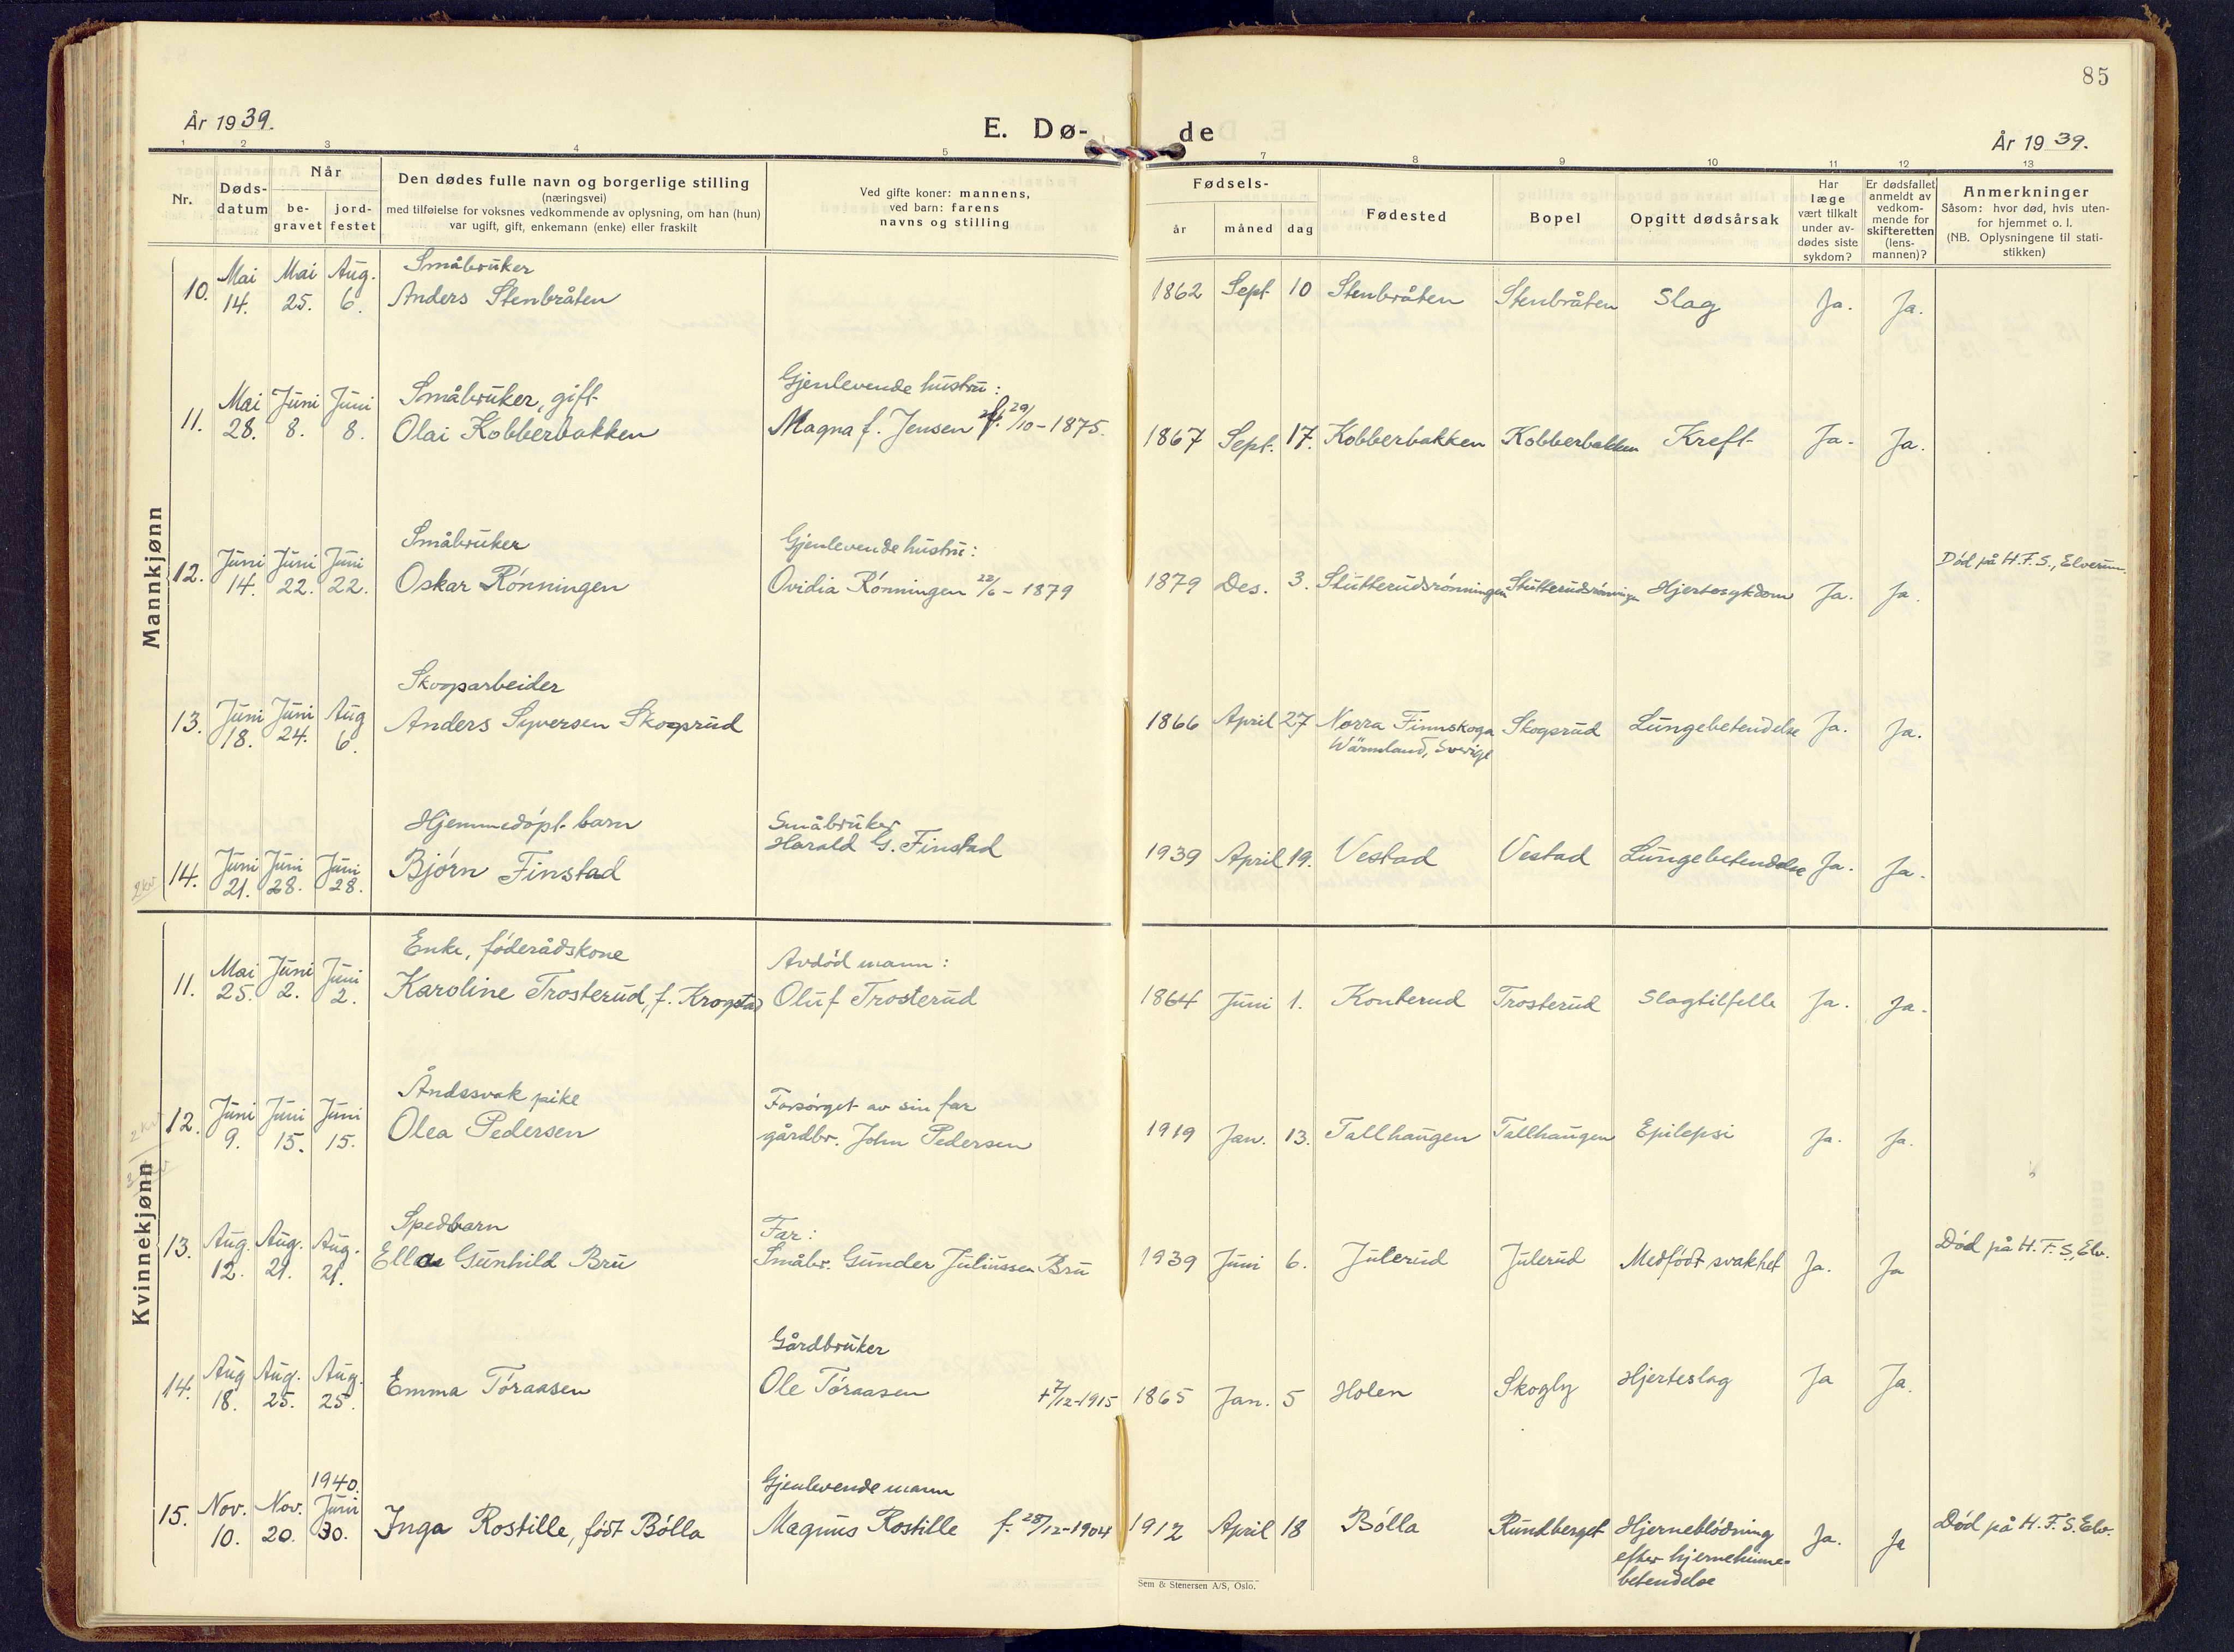 85
År 1939.
E. Døde
År 1939.
1 2 3 4 5 7 8 9 10 11 12 13
Nr.
Døds-
datum
Når
be-
gravet
jord-
festet
Den dødes fulle navn og borgerlige stilling
(næringsvei)
med tilføielse for voksnes vedkommende av oplysning, om han (hun)
var ugift, gift, enkemann (enke) eller fraskilt
Ved gifte koner: mannens,
ved barn: farens
navns og stilling
Fødsels-
år måned dag
Fødested
Bopel
Opgitt dødsårsak
Har
læge
vært tilkalt
under av-
dødes siste
sykdom?
Er dødsfallet
anmeldt av
vedkom-
mende for
skifteretten
(lens-
mannen)?
Anmerkninger
Såsom: hvor død, hvis uten-
for hjemmet o. l.
(NB. Oplysningene til stati-
stikken)
Mannkjønn
Småbruker
10. Mai 14. Mai 25. Aug. 6. Anders Stenbråten 1862 Sept 10 Stenbråten Stenbråten Slag Ja. Ja.
Småbruker, gift Gjenlevende hustru:
11. Mai 28. Juni 8. Juni 8. Olai Kobberbakken Magna f. Jensen f. 29/10-1875. 1867 Sept. 17. Kobberbakken Kobberbakken Kreft Ja. Ja.
Småbruker Gjenlevende hustru:
12. Juni 14. Juni 22. Juni 22. Oskar Rønningen Ovidia Rønningen 22/6-1879 1879 Des. 3. Stutterudsrønningen Stutterudsrønningen Hjertesykdom Ja. Ja. Død på H.F.S., Elverum.
Skogsarbeider
13. Juni 18. Juni 24. Aug 6. Anders Syversen Skogsrud 1866 April 27 Norra Finnskoga Skogsrud Lungebetendelse Ja. Ja.
Wärmland, Sverige
Hjemmedøpt barn Småbruker
14. Juni 21. Juni 28. Juni 28. Bjørn Finstad Harald G. Finstad 1939 April 19. Vestad Vestad Lungebetendelse Ja. Ja.
Kvinnekjønn
Enke, føderådskone Avdød mann:
11. Mai 25. Juni 2. Juni 2. Karoline Trosterud, f. Krogstad Oluf Trosterud 1864 Juni 1. Konterud Trosterud Slagtilfelle Ja. Ja.
Åndssvak pike Forsørget av sin far
12. Juni 9. Juni 15. Juni 15. Olea Pedersen gårdbr. John Pedersen 1919 Jan. 13. Tallhaugen Tallhaugen Epilepsi Ja. Ja.
Spedbarn Far:
13. Aug. 12. Aug. 21. Aug. 21. Ella Gunhild Bru Småbr. Gunder Juliussen Bru 1939 Juni 6. Julerud Julerud Medfødt svakhet Ja. Ja Død på H.F.S., Elv.
Gårdbruker
14. Aug 18. Aug. 25. Aug. 25. Emma Tøraasen Ole Tøraasen +7/12-1915 1865 Jan. 5 Holen Skogly Hjerteslag Ja Ja.
Gjenlevende mann
15. Nov. 10. Nov. 20. 1940. Juni 30. Inga Rostille, født Bølla Magnus Rostille f. 28/12-1904 1912 April 18 Bølla Rundberget Hjerneblødning Ja. Ja Død på H.F.S. Elv.
efter hjernehinne-
betendelse
Sem & Stenersen A/S, Oslo.